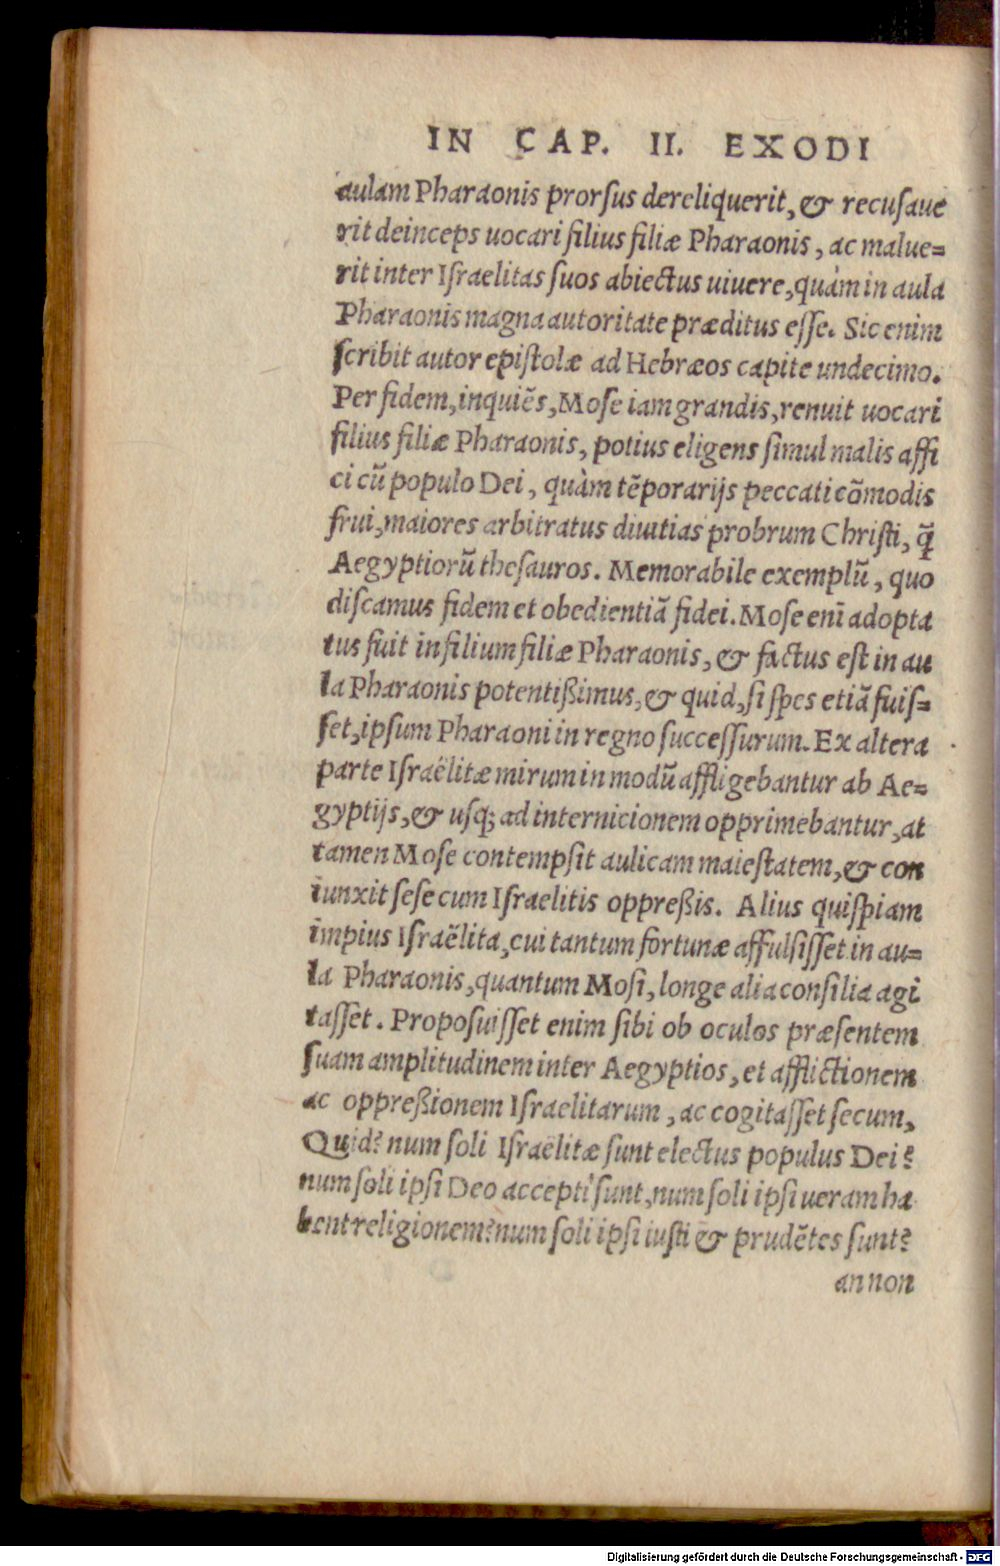 IN CAP. II. EXODI
aulam Pharaonis prorſus dereliquerit, & recuſaue
rit deinceps uocari filius filiæ Pharaonis, ac malue=
rit inter Iſraelitas ſuos abiectus uiuere, quàm in aula
Pharaonis magna autoritate præditus eſſe. Sic enim
ſcribit autor epiſtolæ ad Hebræos capite undecimo.
Per fidem, inquiẽs, Moſe iam grandis, renuit uocari
filius filiæ Pharaonis, potius eligens ſimul malis affi
ci cũ populo Dei, quàm tẽporarijs peccati cõmodis
frui, maiores arbitratus diuitias probrum Chriſti, q̃
Aegyptiorũ theſauros. Memorabile exemplũ, quo
diſcamus fidem et obedientiã fidei. Moſe enĩ adopta
tus fuit in filium filiæ Pharaonis, & factus eſt in au
la Pharaonis potentißimus, & quid, ſi ſpes etiã fuiſ=
ſet, ipſum Pharaoni in regno ſucceſſurum. Ex altera
parte Iſraëlitæ mirum in modũ affligebantur ab Ae=
gyptijs, & uſq; ad internicionem opprimebantur, at
tamen Moſe contempſit aulicam maieſtatem, & con
iunxit ſeſe cum Iſraelitis oppreßis. Alius quiſpiam
impius Iſraëlita, cui tantum fortunæ affulſiſſet in au=
la Pharaonis, quantum Moſi, longe alia conſilia agi
taſſet. Propoſuiſſet enim ſibi ob oculos præſentem
ſuam amplitudinem inter Aegyptios, et afflictionem
ac oppreßionem Iſraelitarum, ac cogitaſſet ſecum,
Quid? num ſoli Iſraëlitæ ſunt electus populus Dei?
num ſoli ipſi Deo accepti ſunt, num ſoli ipſi ueram ha
bent religionem? num ſoli ipſi iuſti & prudẽtes ſunt?
an non
Digitalisierung gefördert durch die Deutsche Forschungsgemeinschaft - DFG